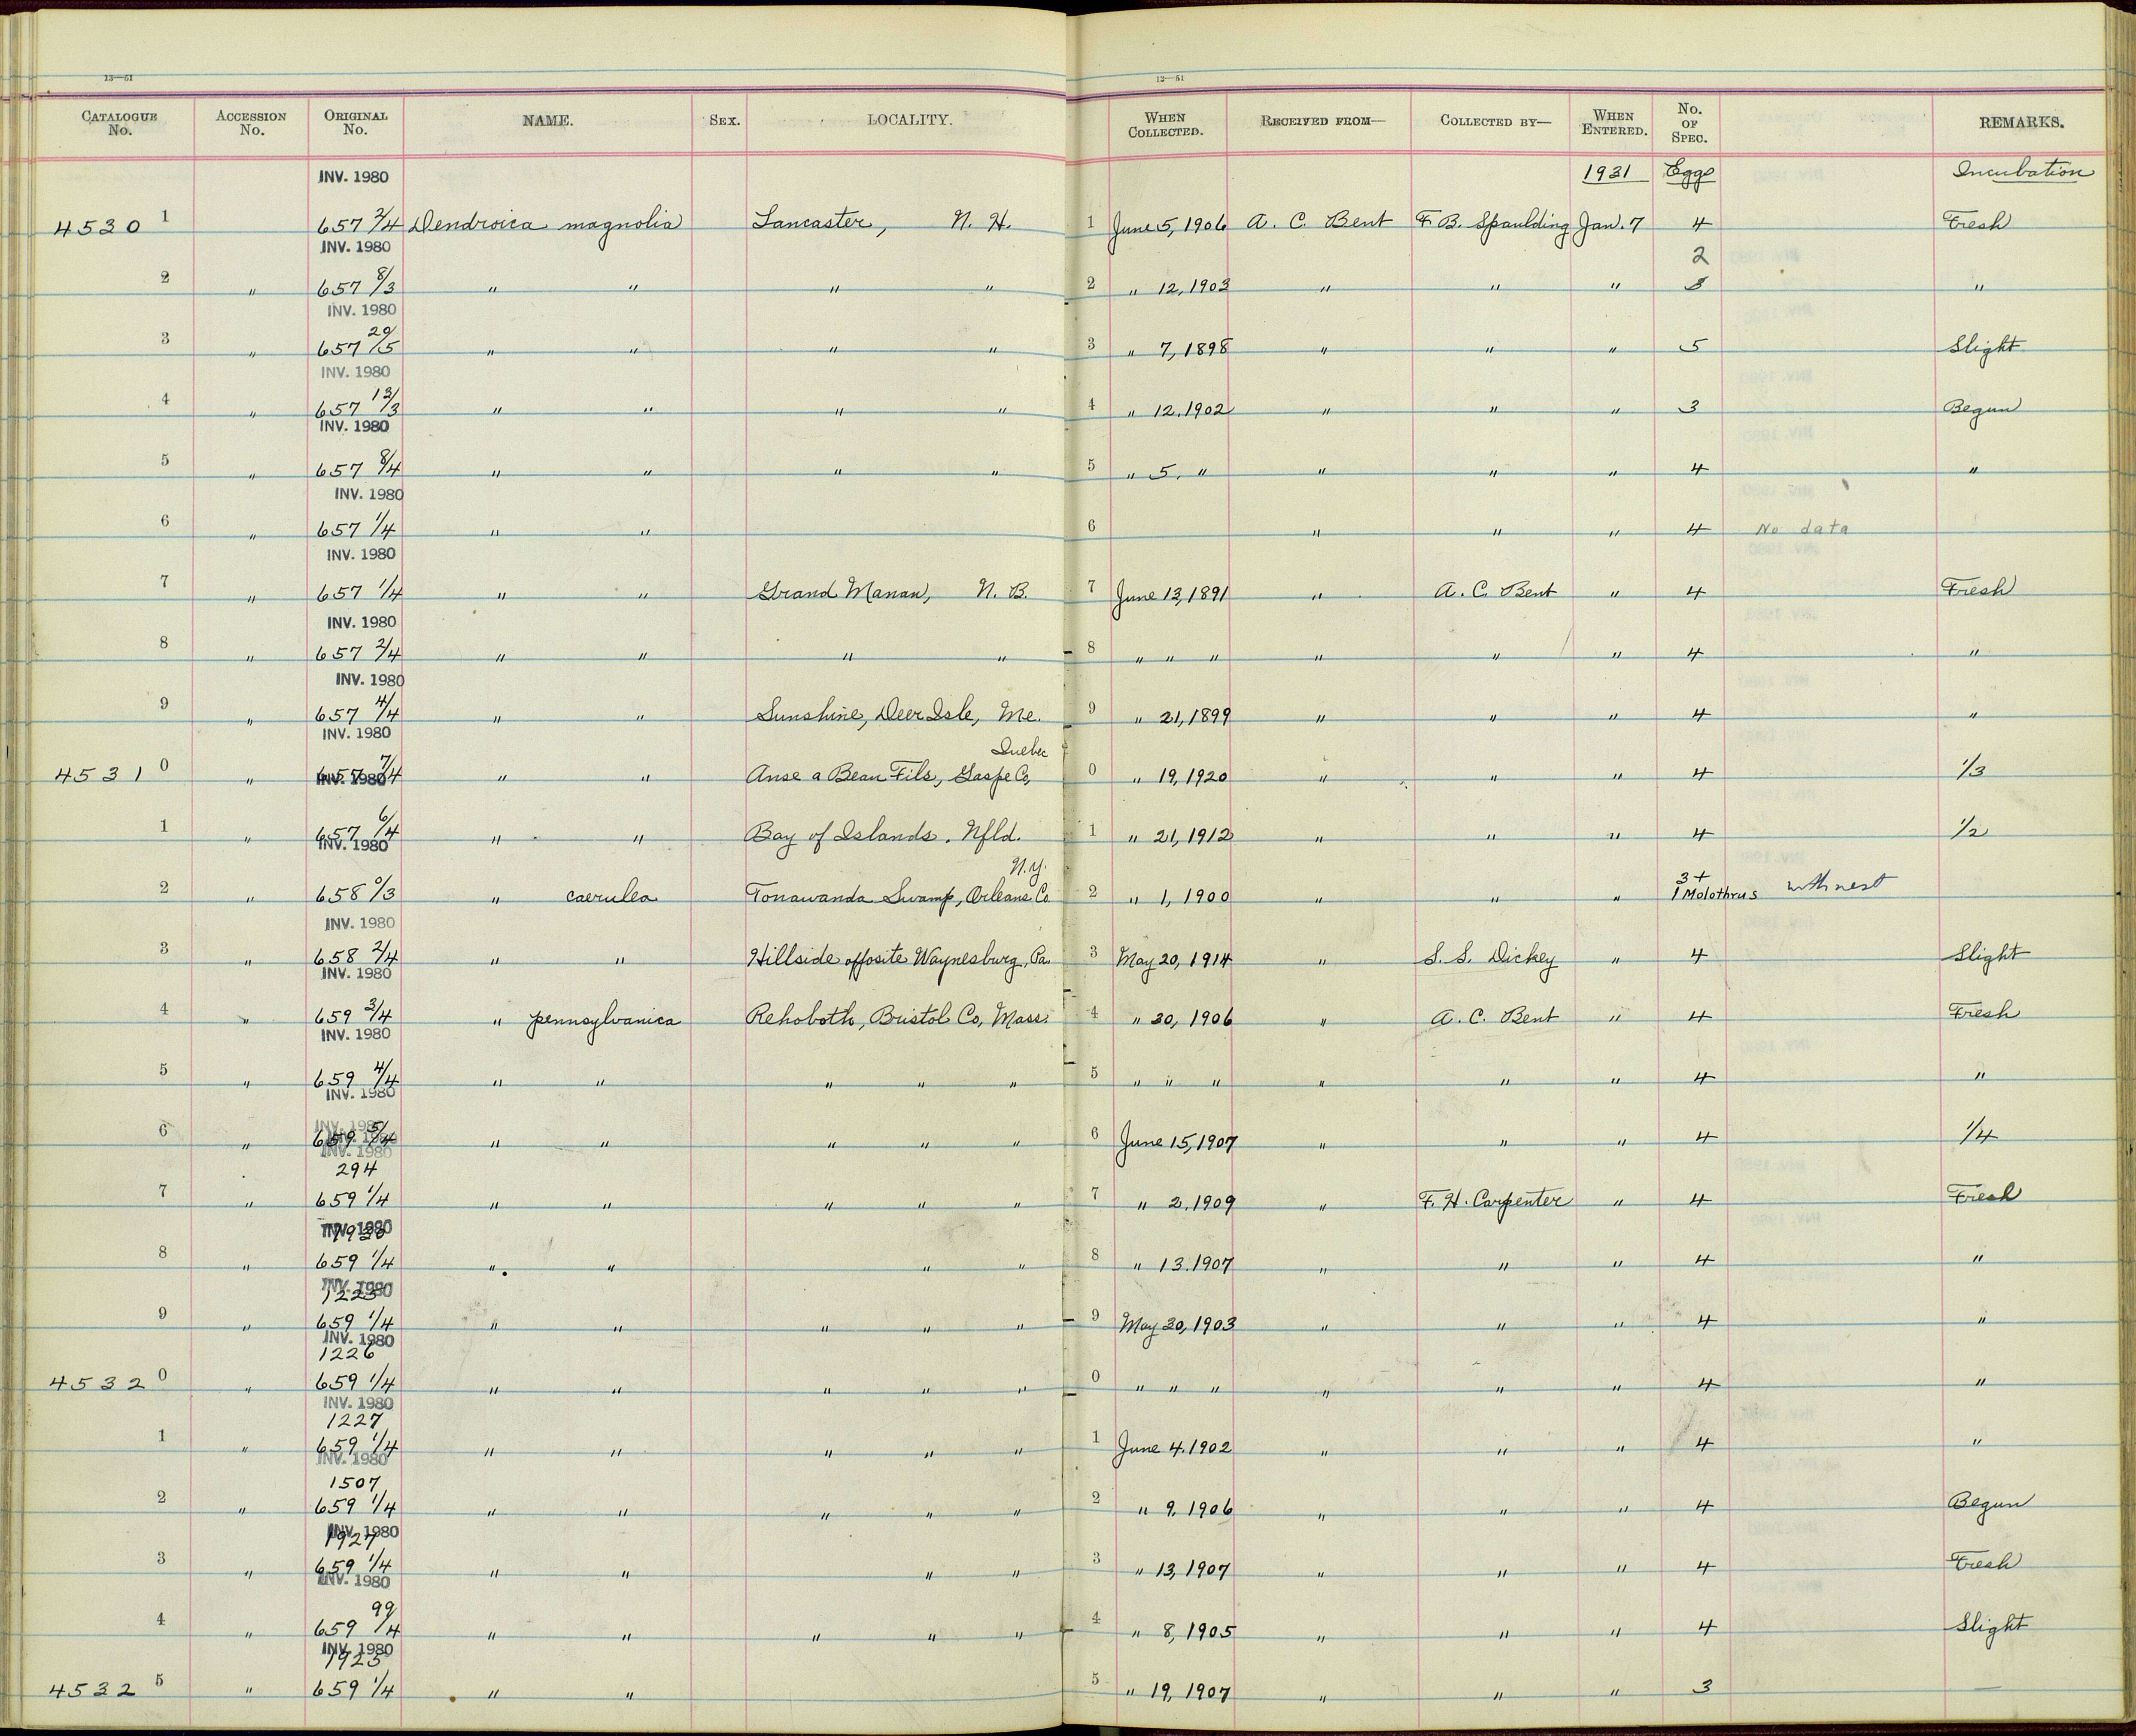 13—51 12—51
CATALOGUE No. ACCESSION No. ORIGINAL No. NAME. SEX. LOCALITY. WHEN COLLECTED. RECEIVED FROM— COLLECTED BY— WHEN ENTERED. No. OF SPEC. REMARKS.
INV. 1980 1931 Eggs Incubation
4530 1 657 2/4 Dendroica magnolia Lancaster, N. H. 1 June 5, 1906 A. C. Bent F. B. Spaulding Jan. 7 4 Fresh
INV. 1980 2
2 " 657 8/3 " " " " 2 " 12, 1903 " " " 3 "
INV. 1980
3 " 657 20/5 " " " " 3 " 7, 1898 " " " 5 Slight
INV. 1980
4 " 657 13/3 " " " " 4 " 12, 1902 " " " 3 Begun
INV. 1980
5 " 657 8/4 " " " " 5 " 5, " " " " 4 "
INV. 1980
6 " 657 1/4 " " 6 " " " 4 No data
INV. 1980
7 " 657 1/4 " " Grand Manan, N. B. 7 June 13, 1891 " A. C. Bent " 4 Fresh
INV. 1980
8 " 657 2/4 " " " " 8 " " " " " " 4 "
INV. 1980
9 " 657 4/4 " " Sunshine, Deer Isle, Me. 9 " 21, 1899 " " " 4 "
INV. 1980
Quebec
4531 0 " 657 7/4 " " Anse a Beau Fils, Gaspe Co, 0 " 19, 1920 " " " 4 1/3
INV. 1980
1 " 657 6/4 " " Bay of Islands, Nfld. 1 " 21, 1912 " " " 4 1/2
INV. 1980
N.Y.
2 " 658 0/3 " caerulea Tonawanda Swamp, Orleans Co 2 " 1, 1900 " " " 3 + 1 Molothrus with nest
INV. 1980
3 " 658 2/4 " " Hillside opposite Waynesburg, Pa. 3 May 20, 1914 " S. S. Dickey " 4 Slight
INV. 1980
4 " 659 3/4 " pennsylvanica Rehoboth, Bristol Co, Mass. 4 " 30, 1906 " A. C. Bent " 4 Fresh
INV. 1980
5 " 659 4/4 " " " " " 5 " " " " " " 4 "
INV. 1980
INV. 1980
6 " 659 5/4 " " " " " 6 June 15, 1907 " " " 4 1/4
INV. 1980
294
7 " 659 1/4 " " " " " 7 " 2, 1909 " F. H. Carpenter " 4 Fresh
INV. 1980
8 " 659 1/4 " " " " 8 " 13, 1907 " " " 4 "
INV. 1980
1225
9 " 659 1/4 " " " " " 9 May 30, 1903 " " " 4 "
INV. 1980
1226
4532 0 " 659 1/4 " " " " " 0 " " " " " " 4 "
INV. 1980
1227
1 " 659 1/4 " " " " " 1 June 4, 1902 " " " 4 "
INV. 1980
1507
2 " 659 1/4 " " " " " 2 " 9, 1906 " " " 4 Begun
INV. 1980
1927
3 " 659 1/4 " " " " 3 " 13, 1907 " " " 4 Fresh
INV. 1980
4 " 659 99/4 " " " " " 4 " 8, 1905 " " " 4 Slight
INV. 1980
1925
4532 5 " 659 1/4 " " 5 " 19, 1907 " " " 3 —